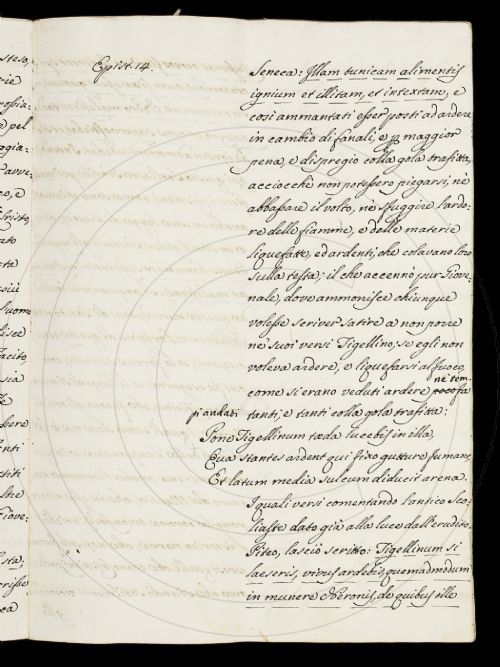 Epist. 14.
Seneca: Illam tunicam alimentis
ignium et illitam, et intextam, e
così ammantati esser posti ad ardere
in cambio di fanali, e p maggior
pena, e dispregio colla gola trafitta,
acciocchè non potessero piegarsi, nè
abbassare il volto, nè sfuggire l'ardo:
re delle fiamme, e delle materie
liquefatte, ed ardenti, che colavano loro
sulla testa; il che accennò pur Giove:
nale, dove ammonisce chiunque
volesse scriver satire a non porre
ne suoi versi Tigellino, se egli non
voleva ardere, e liquefarsi al fuoco,
come si erano veduti ardere poco fa
ne' tem:
pi andati
tanti, e tanti colla gola trafitta:
Pone Tigellinum tæda lucebis in illa,
Qua stantes ardent qui fixo gutture fumant,
Et latum media sulcum diducit arena.
I quali versi comentando l'antico Sco:
liaste dato già alla luce dall'erudito
Piteo, lasciò scritto: Tigellinum si
laeseris, vivus ardebis, quemadmodum
in munere Neronis, de quibus ille